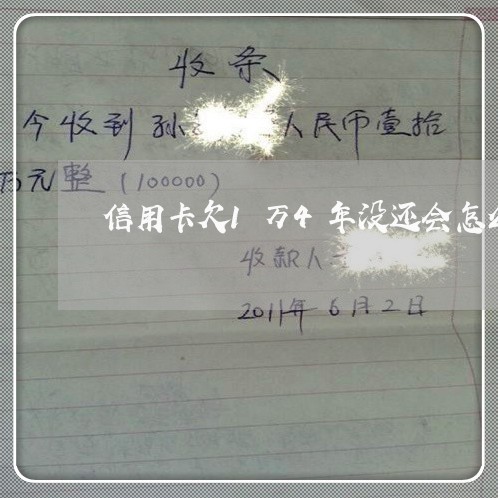 收条
今收到孙 人民币壹拾
万元整（100000）
信用卡欠1万4年没还会怎
收款人
2011年6月2日